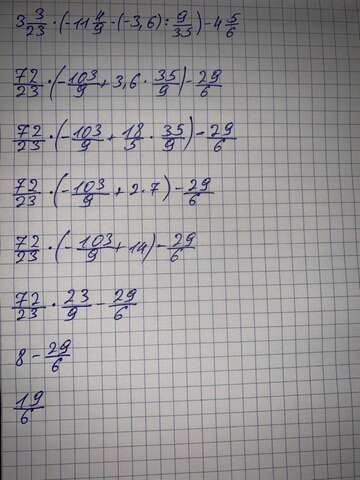 3 3/23 · (-11 4/9 - (-3,6) : 9/35) - 4 5/6
72/23 · (-103/9 + 3,6 · 35/9) - 29/6
72/23 · (-103/9 + 18/5 · 35/9) - 29/6
72/23 · (-103/9 + 2 · 7) - 29/6
72/23 · (-103/9 + 14) - 29/6
72/23 · 23/9 - 29/6
8 - 29/6
19/6